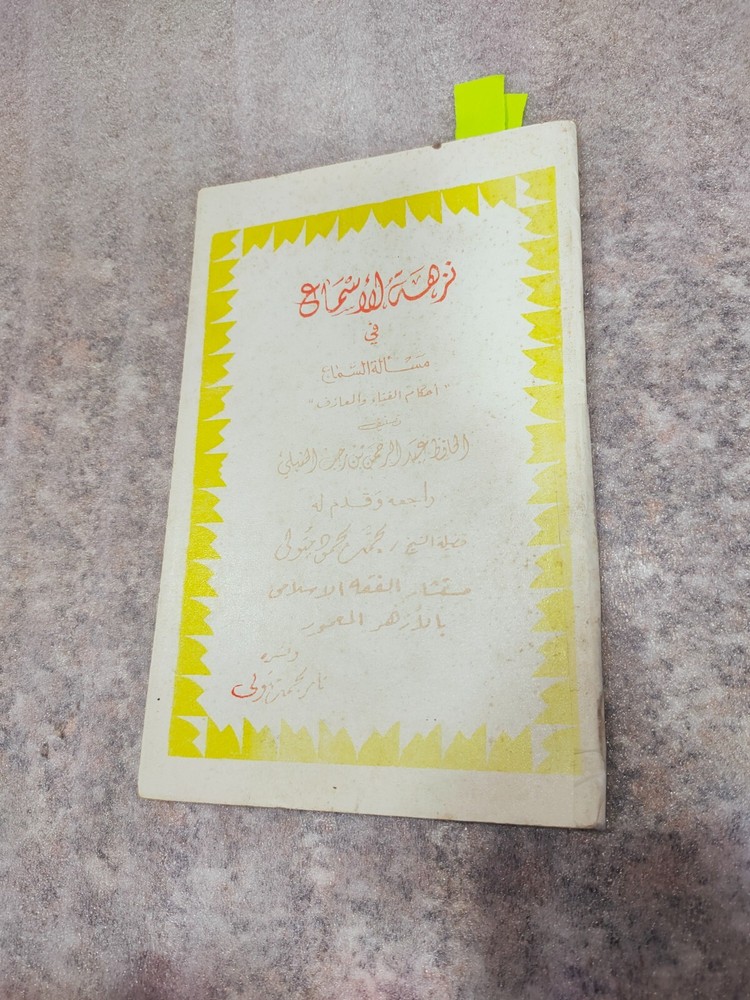 نزهة الأسماع
في
مسألة السماع
"أحكام الغناء والمعازف"
تصنيف
الحافظ عبد الرحمن بن رجب الحنبلي
راجعه وقدم له
فضيلة الشيخ / محمد محمود متولى
مستشار الفقه الاسلامى
بالأزهر المعمور
ولى